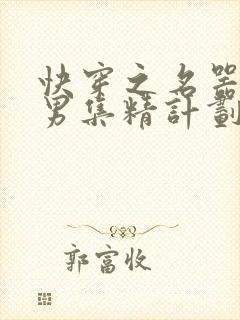 快穿之名器
男集精計劃
郭富收